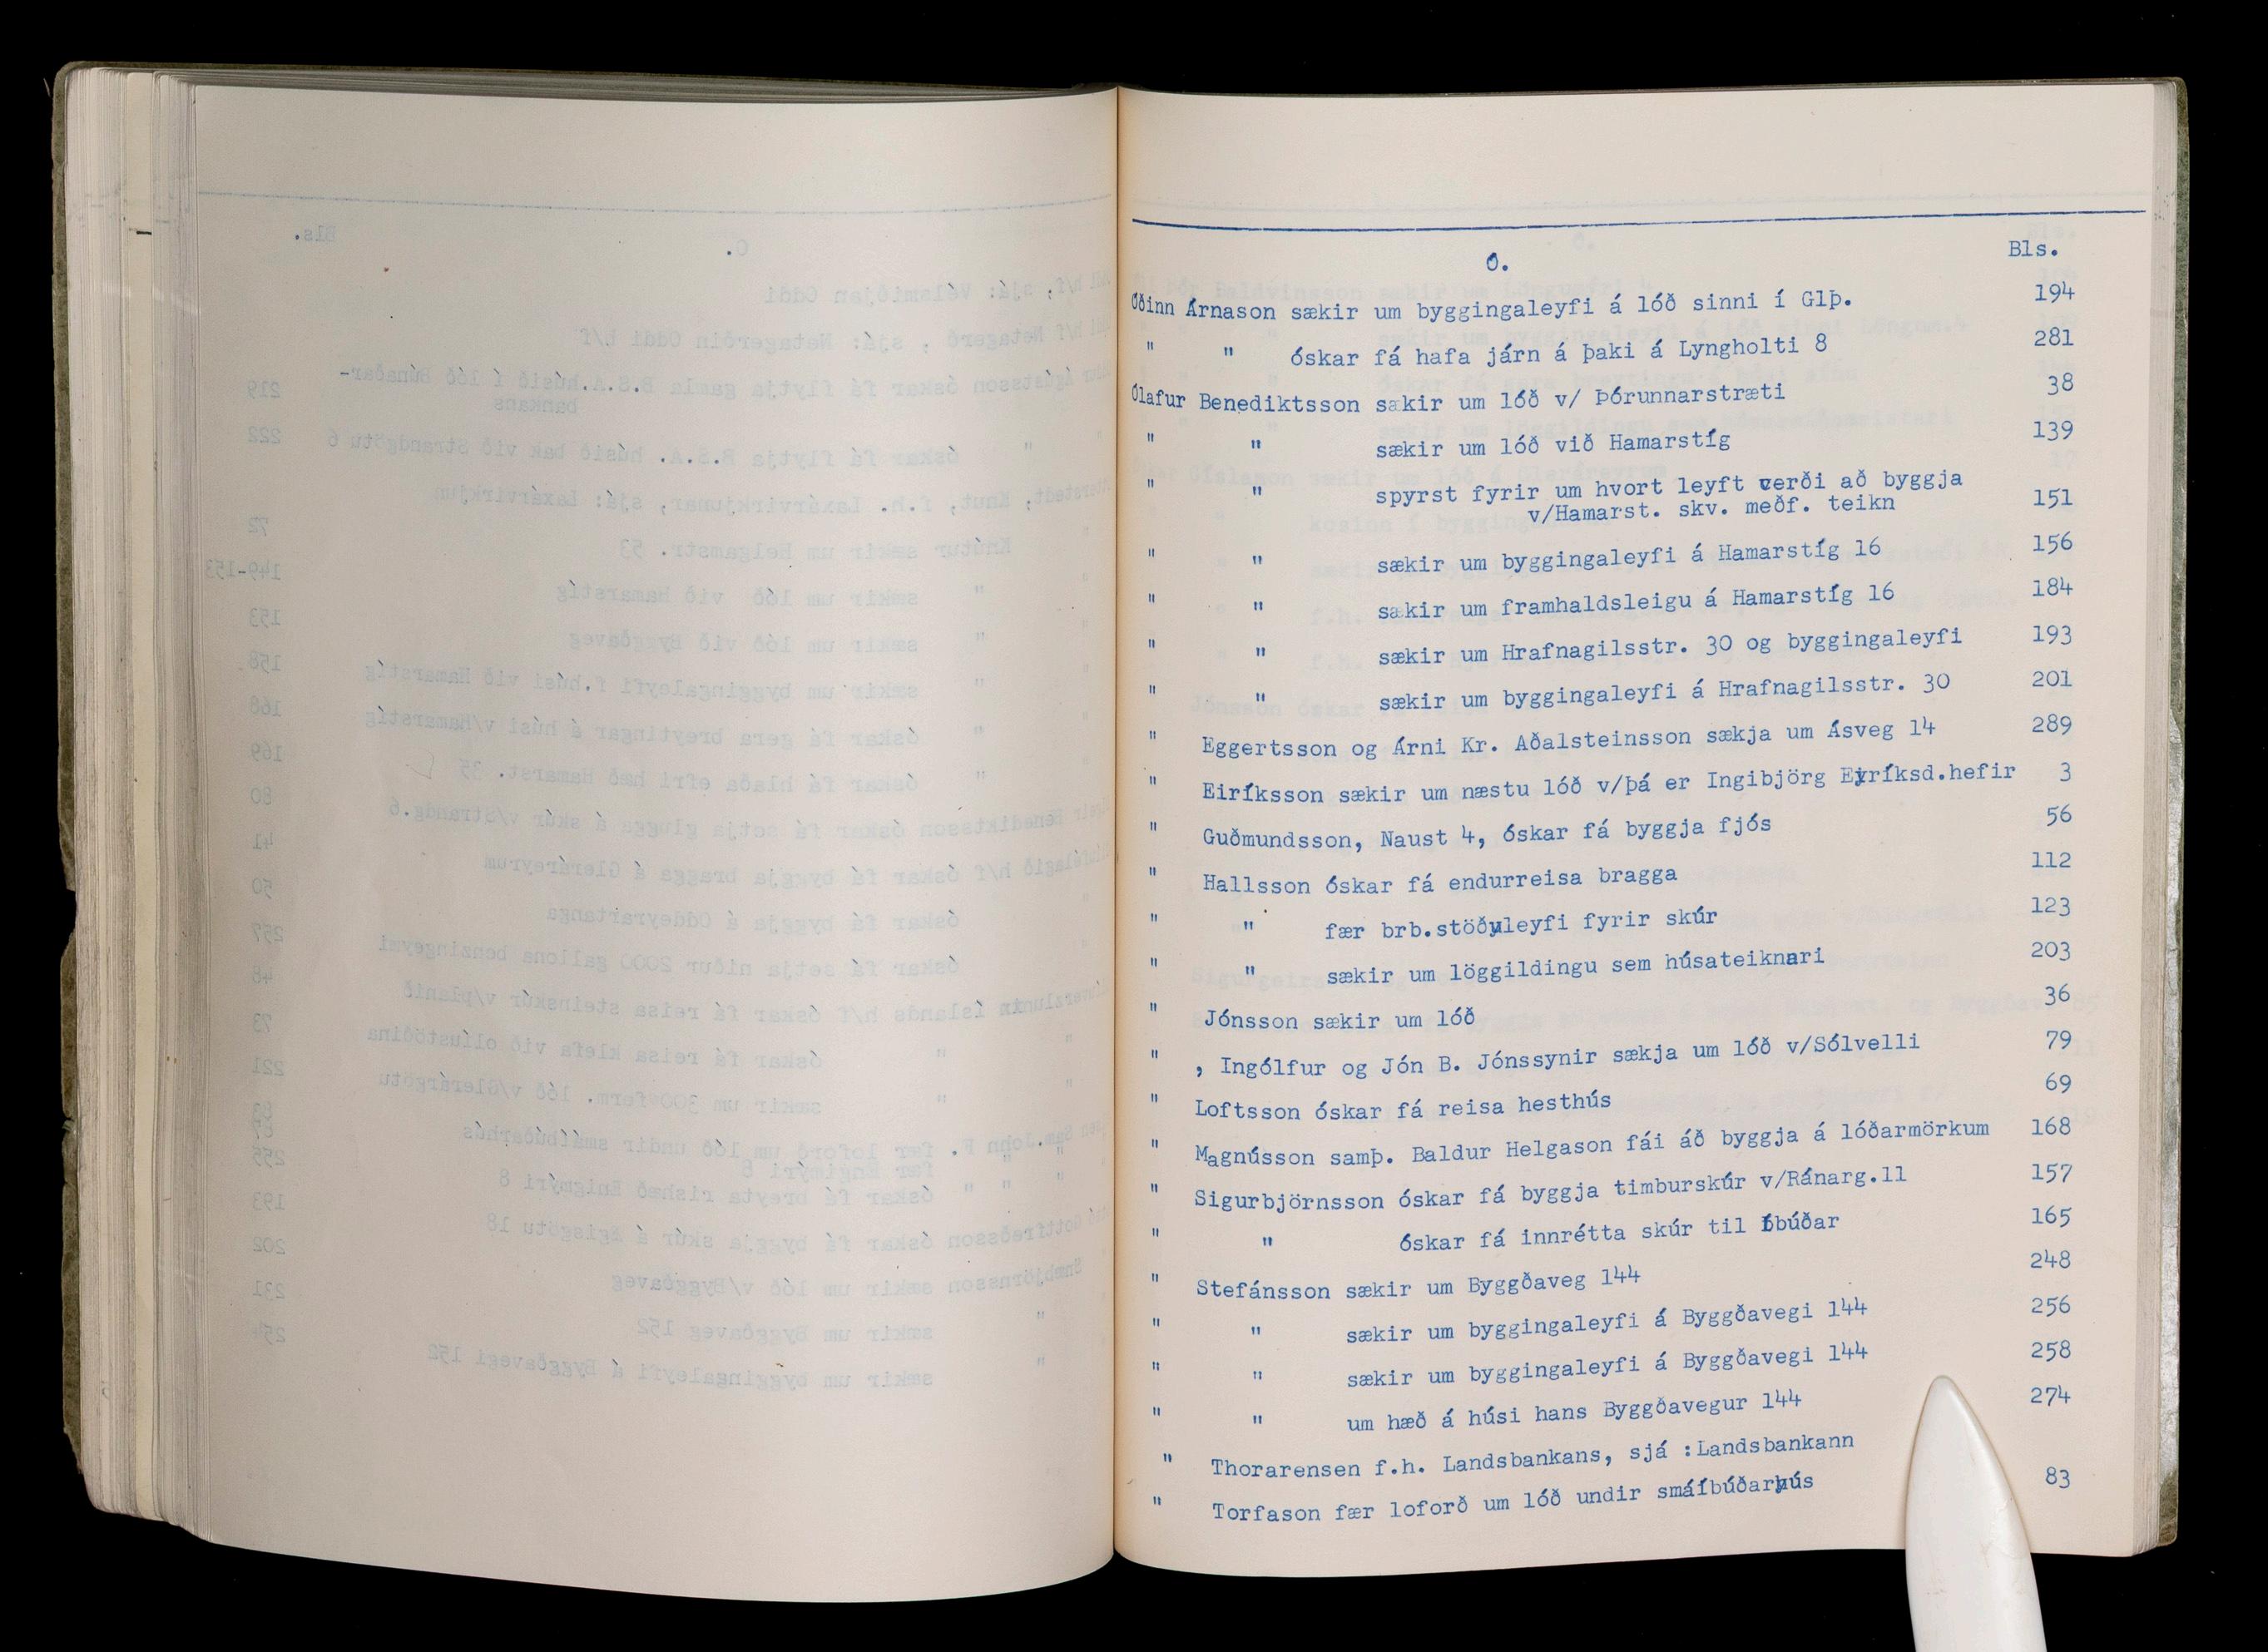 Ó. Bls.
Óðinn Árnason sækir um byggingaleyfi á lóð sinni í Glþ. 194
" " óskar fá hafa járn á þaki á Lyngholti 8 281
Ólafur Benediktsson sækir um lóð v/ Þórunnarstræti 38
" " sækir um lóð við Hamarstíg 139
" " spyrst fyrir um hvort leyft verði að byggja
v/Hamarst. skv. meðf. teikn 151
" " sækir um byggingaleyfi á Hamarstíg 16 156
" " sækir um framhaldsleigu á Hamarstíg 16 184
" " sækir um Hrafnagilsstr. 30 og byggingaleyfi 193
" " sækir um byggingaleyfi á Hrafnagilsstr. 30 201
" Eggertsson og Árni Kr. Aðalsteinsson sækja um Ásveg 14 289
" Eiríksson sækir um næstu lóð v/þá er Ingibjörg Eiríksd.hefir 3
" Guðmundsson, Naust 4, óskar fá byggja fjós 56
" Hallsson óskar fá endurreisa bragga 112
" " fær brb.stöðuleyfi fyrir skúr 123
" " sækir um löggildingu sem húsateiknari 203
" Jónsson sækir um lóð 36
" , Ingólfur og Jón B. Jónssynir sækja um lóð v/Sólvelli 79
" Loftsson óskar fá reisa hesthús 69
" Magnússon samþ. Baldur Helgason fái áð byggja á lóðarmörkum 168
" Sigurbjörnsson óskar fá byggja timburskúr v/Ránarg.11 157
" " óskar fá innrétta skúr til íbúðar 165
" Stefánsson sækir um Byggðaveg 144 248
" " sækir um byggingaleyfi á Byggðavegi 144 256
" " sækir um byggingaleyfi á Byggðavegi 144 258
" " um hæð á húsi hans Byggðavegur 144 274
" Thorarensen f.h. Landsbankans, sjá :Landsbankann
" Torfason fær loforð um lóð undir smáíbúðarhús 83